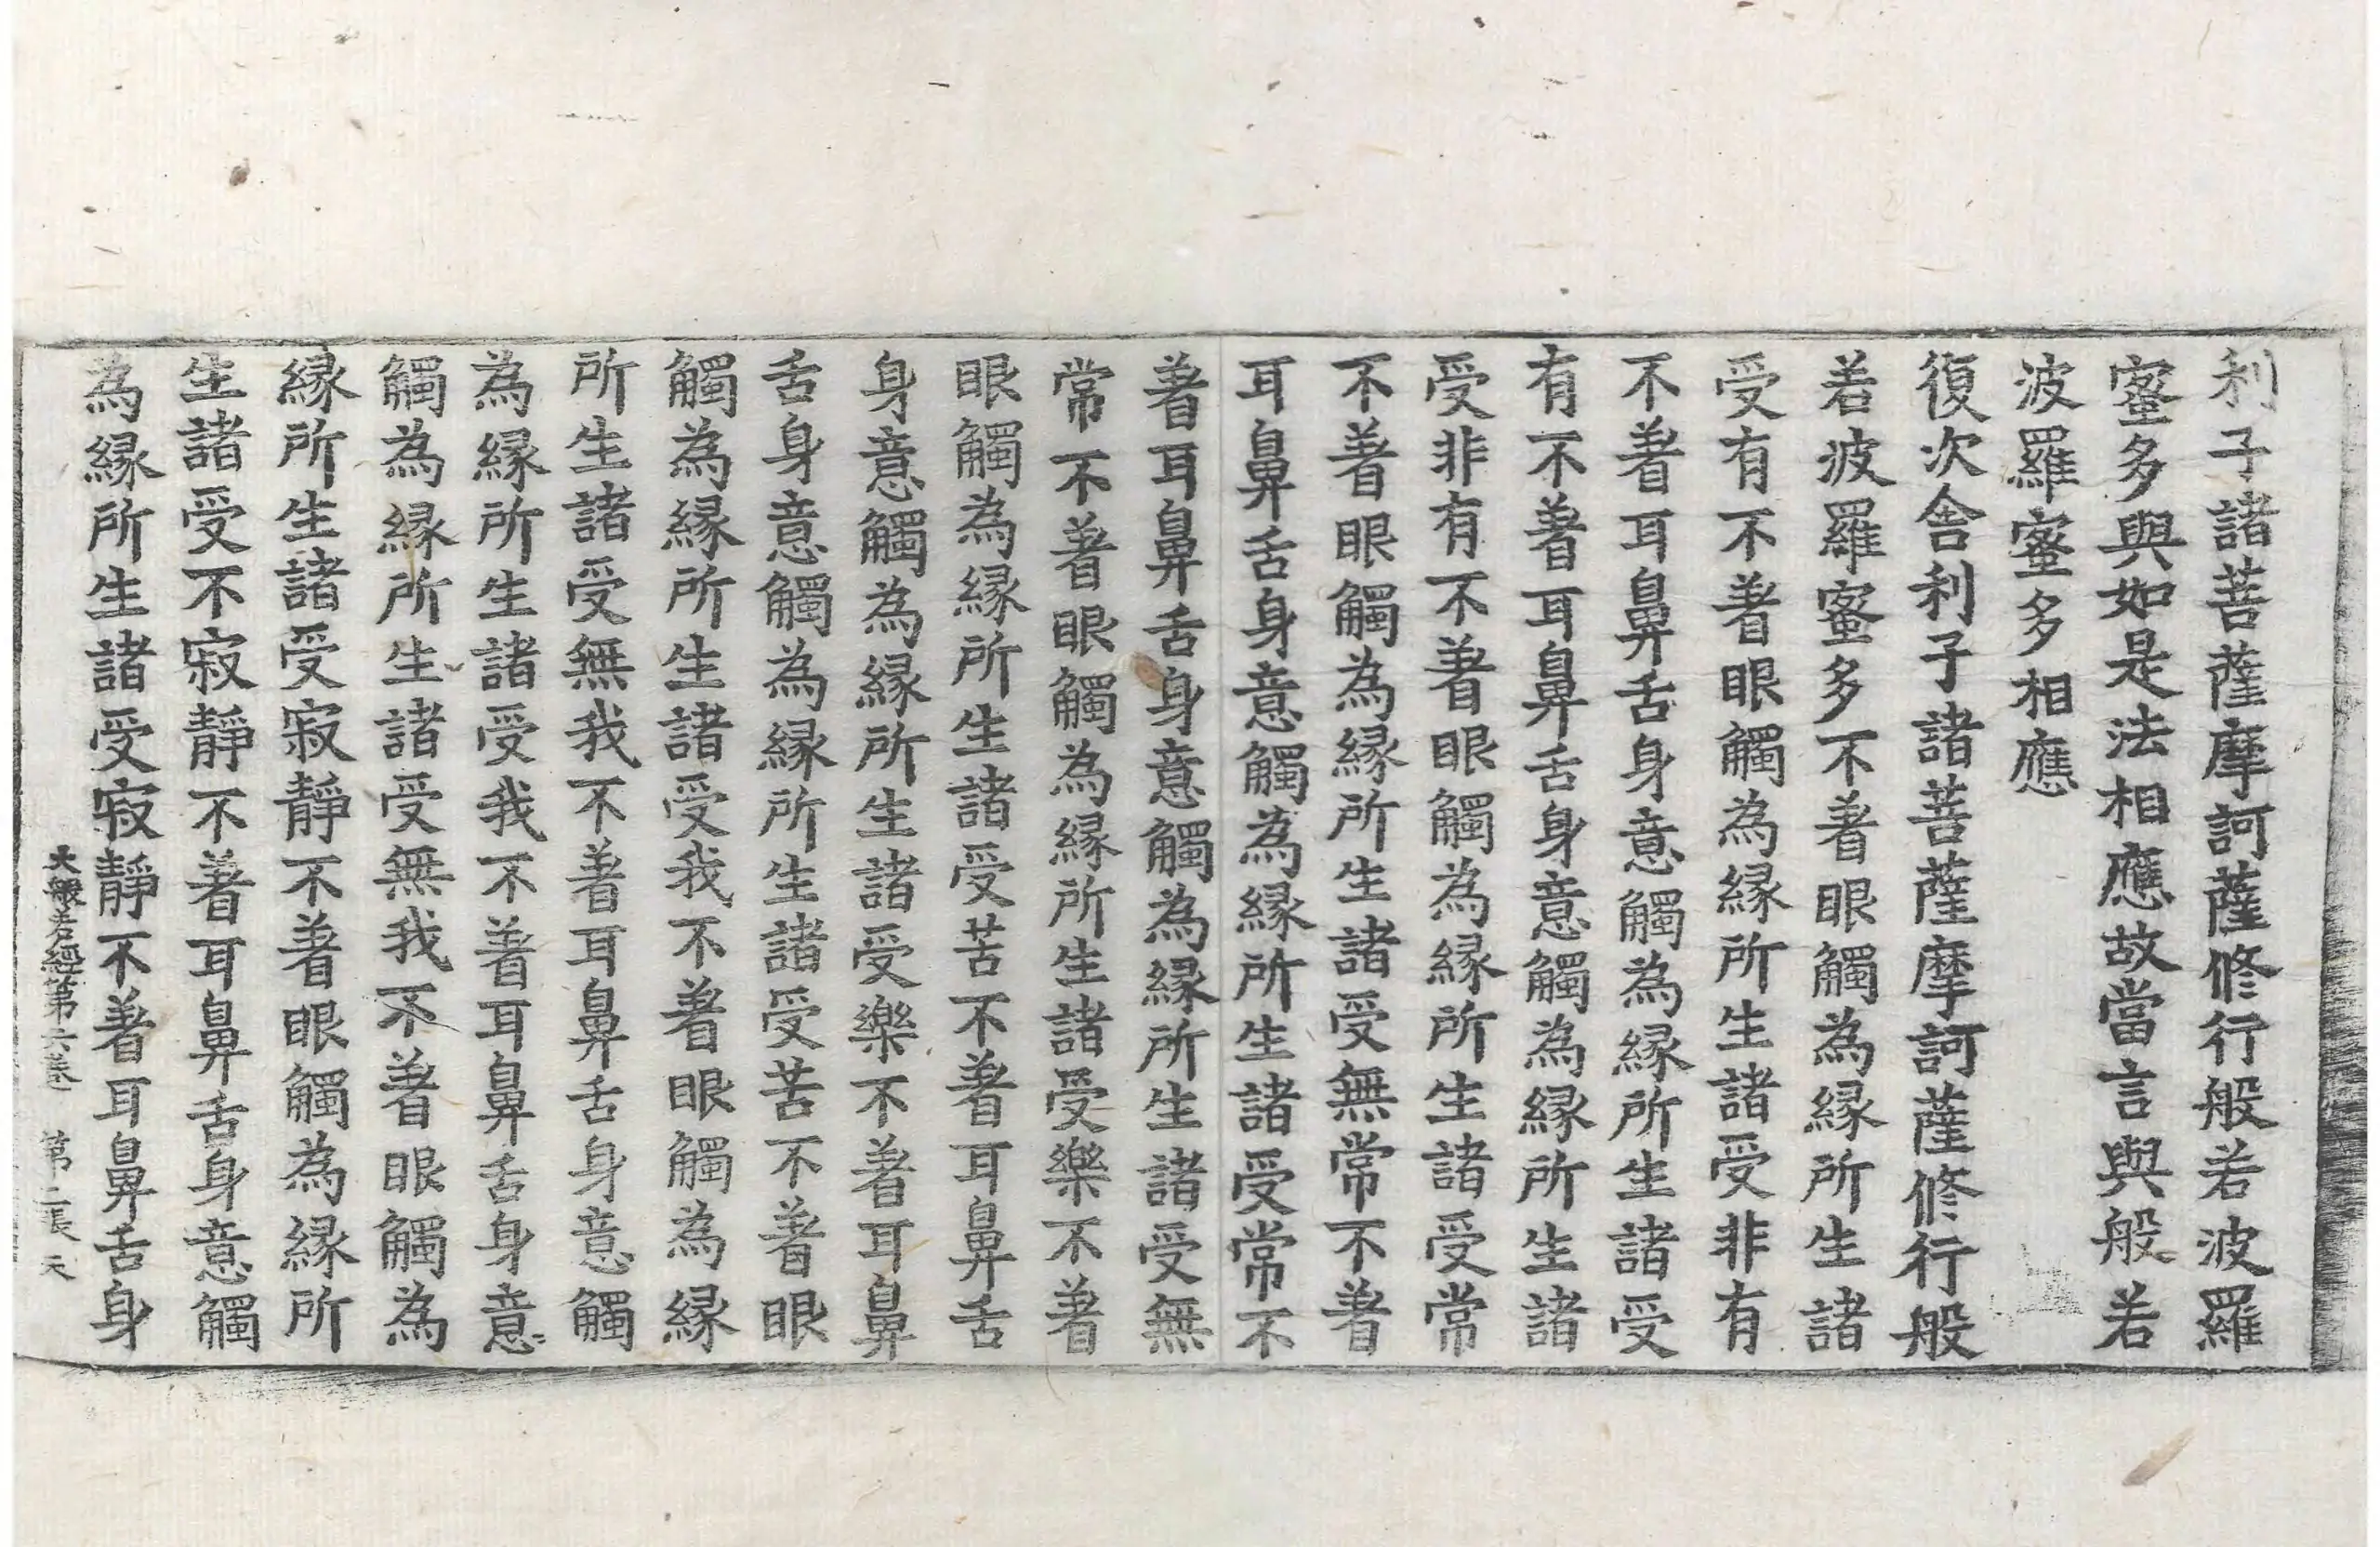 利子諸菩薩摩訶薩修行般若波羅
蜜多與如是法相應故當言與般若
波羅蜜多相應
復次舍利子諸菩薩摩訶薩修行般
若波羅蜜多不著眼觸為緣所生諸
受有不著眼觸為緣所生諸受非有
不著耳鼻舌身意觸為緣所生諸受
有不著耳鼻舌身意觸為緣所生諸
受非有不著眼觸為緣所生諸受常
不著眼觸為緣所生諸受無常不著
耳鼻舌身意觸為緣所生諸受常不
著耳鼻舌身意觸為緣所生諸受無
常不著眼觸為緣所生諸受樂不著
眼觸為緣所生諸受苦不著耳鼻舌
身意觸為緣所生諸受樂不著耳鼻
舌身意觸為緣所生諸受苦不著眼
觸為緣所生諸受我不著眼觸為緣
所生諸受無我不著耳鼻舌身意觸
為緣所生諸受我不著耳鼻舌身意
觸為緣所生諸受無我不著眼觸為
緣所生諸受寂靜不著眼觸為緣所
生諸受不寂靜不著耳鼻舌身意觸
為緣所生諸受寂靜不著耳鼻舌身
大般若經第六卷 第二張 天